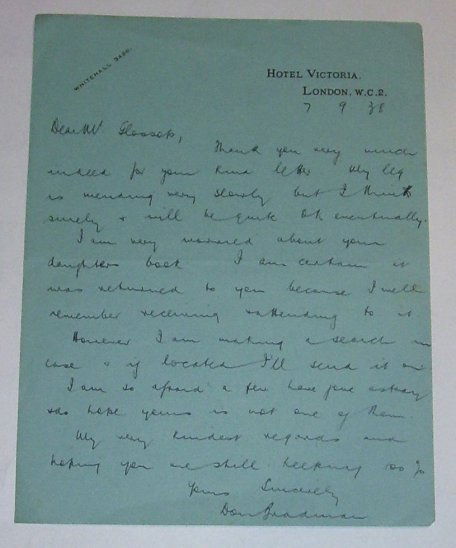 WHITEHALL 3400.
HOTEL VICTORIA,
LONDON, W.C.2.
7 9 38
Dear Mr Glossop,
Thank you very much
indeed for your kind letter My leg
is mending very slowly but I think
surely & will be quite OK eventually.
I am very worried about your
daughters book I am certain it
was returned to you because I well
remember receiving & attending to it
However I am making a search in
case & if located I'll send it on
I am so afraid a few have gone astray
& do hope yours is not one of them.
My very kindest regards and
hoping you are still keeping so
Yours Sincerely
Don Bradman